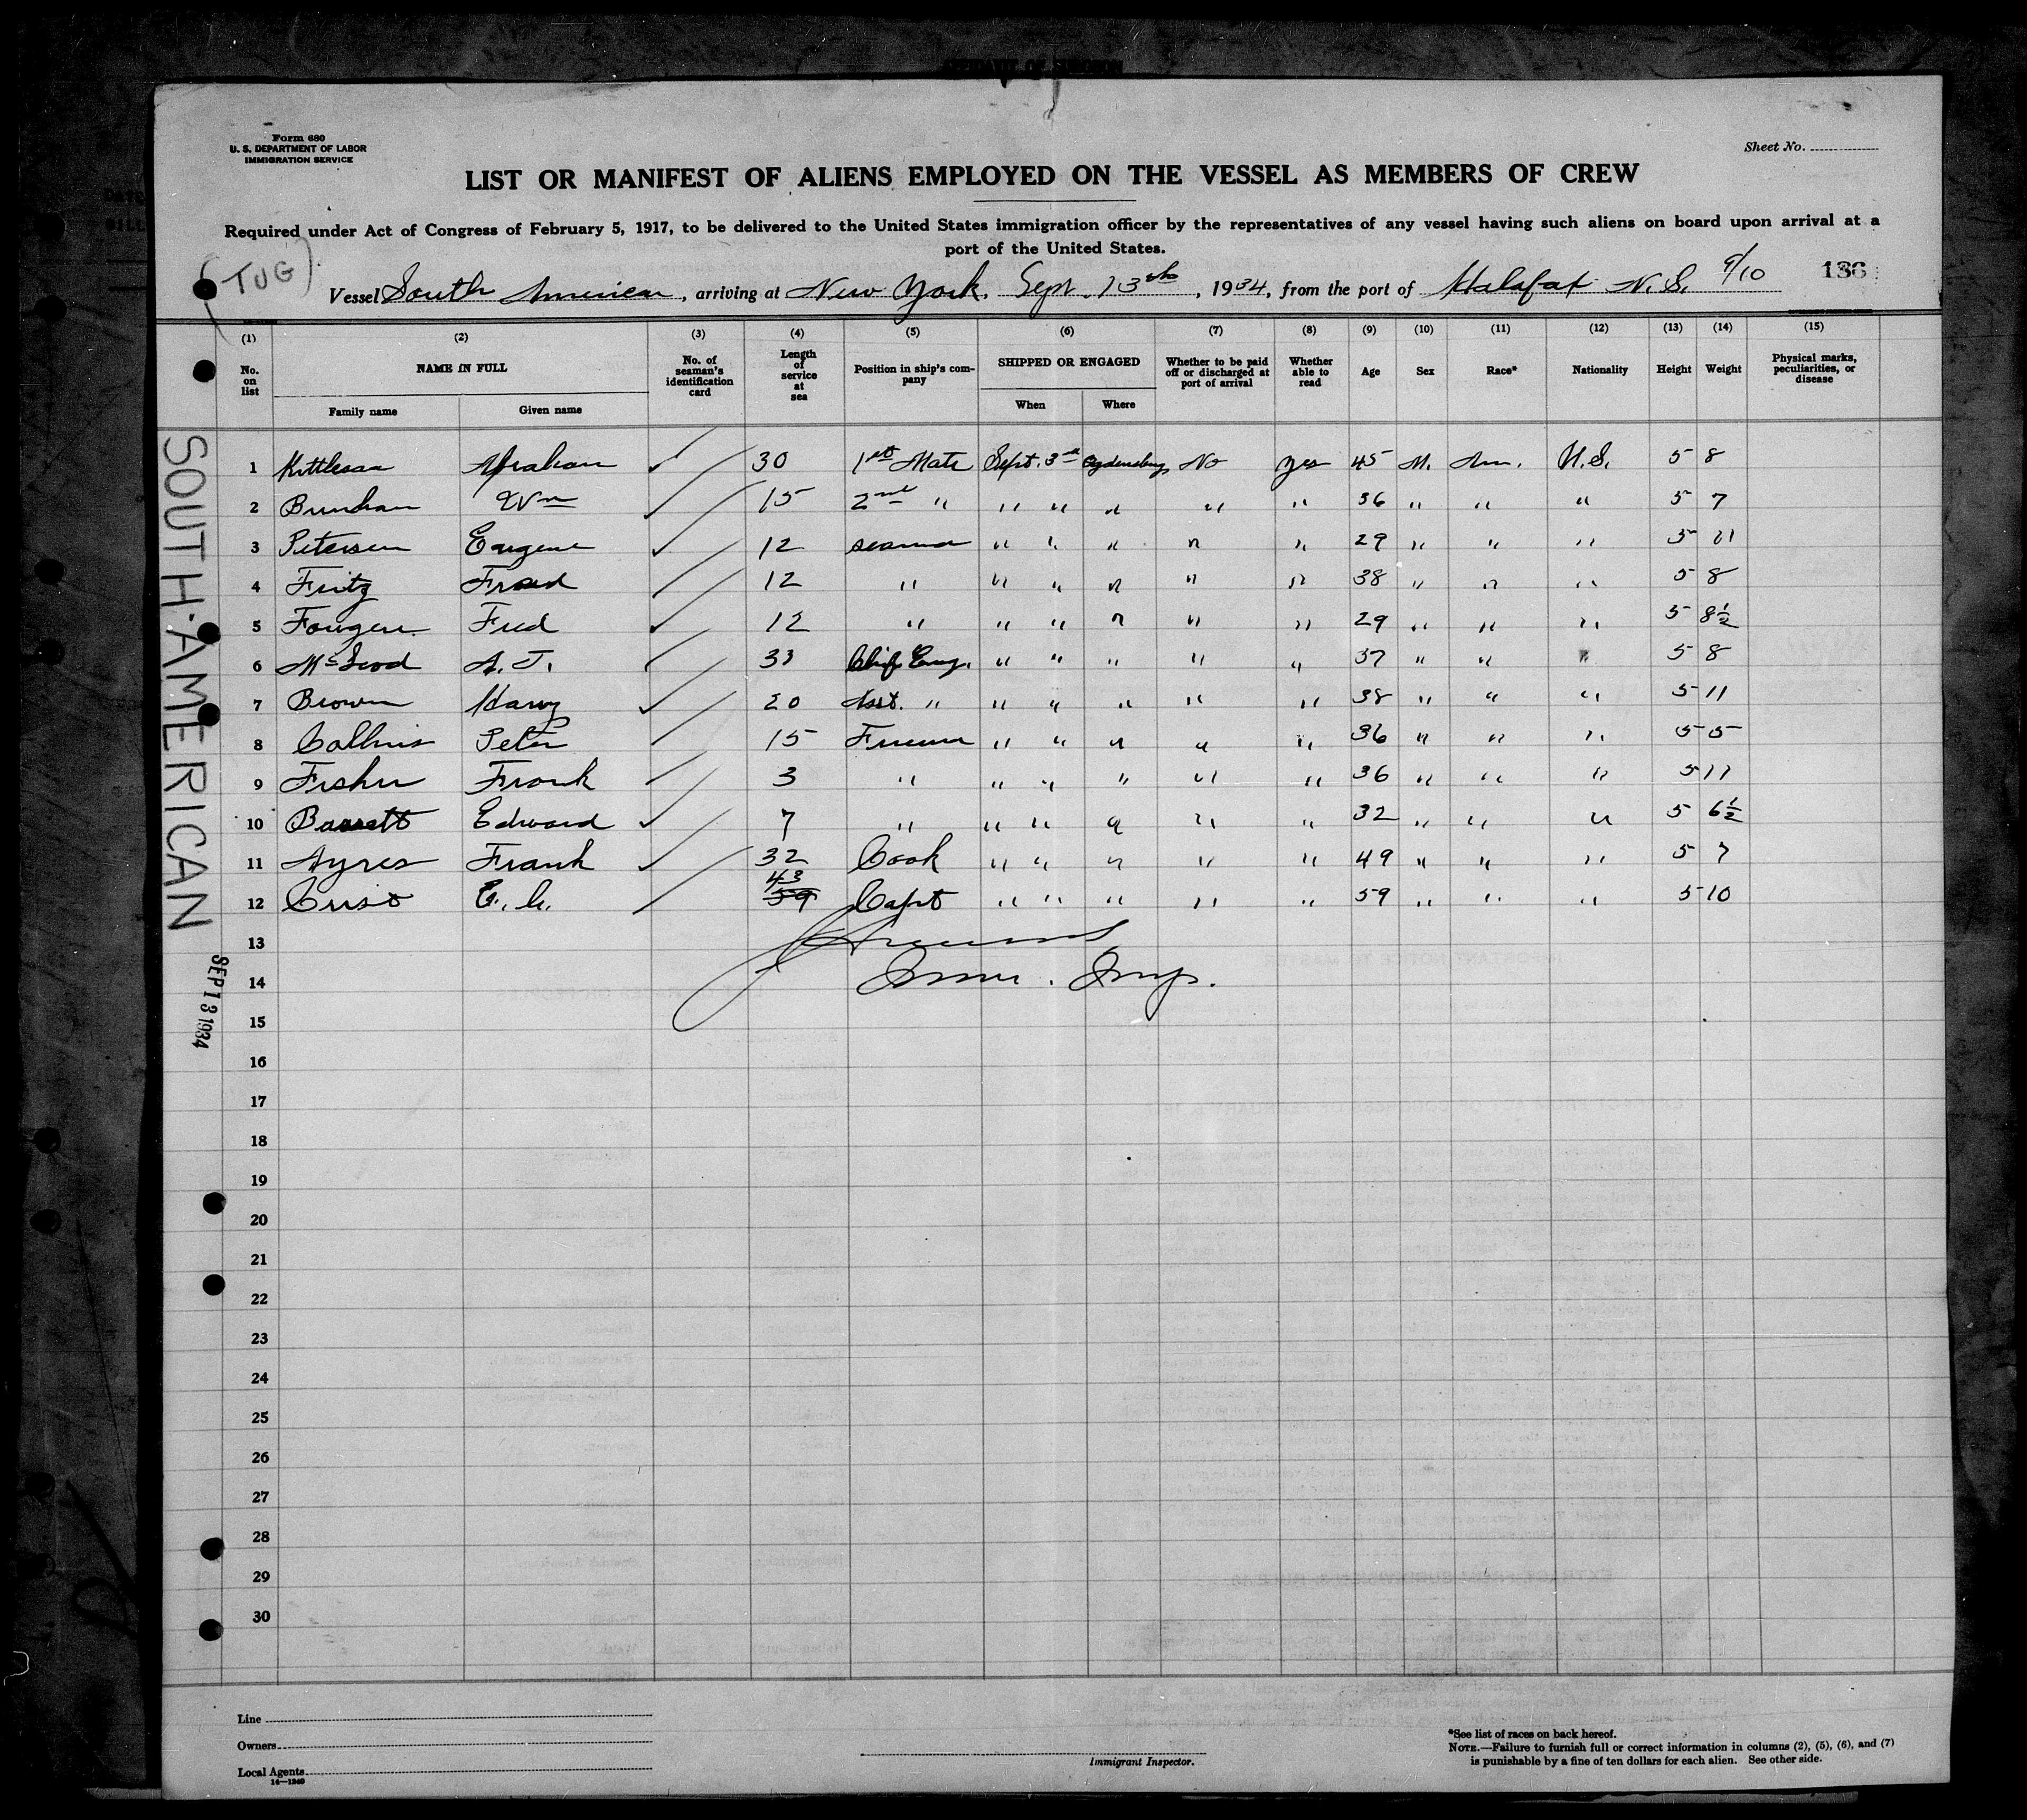 Form 680
U. S. DEPARTMENT OF LABOR
IMMIGRATION SERVICE
Sheet No.
LIST OR MANIFEST OF ALIENS EMPLOYED ON THE VESSEL AS MEMBERS OF CREW
Required under Act of Congress of February 5, 1917, to be delivered to the United States immigration officer by the representatives of any vessel having such aliens on board upon arrival at a
port of the United States.
(TUG)
Vessel South American, arriving at New York, Sept. 13th, 1934, from the port of Halafat N.S. 9/10 136
(1) (2) (3) (4) (5) (6) (7) (8) (9) (10) (11) (12) (13) (14) (15)
No. on list NAME IN FULL No. of seaman's identification card Length of service at sea Position in ship's company SHIPPED OR ENGAGED Whether to be paid off or discharged at port of arrival Whether able to read Age Sex Race* Nationality Height Weight Physical marks, peculiarities, or disease
Family name Given name When Where
1 Kittlesan Abraham ✓ 30 1st Mate Sept. 3rd Ogdensburg No yes 45 M. Am. U.S. 5 8
2 Burnham Wm ✓ 15 2nd " " " " " " 36 " " " 5 7
3 Petersen Eugene ✓ 12 seaman " " " " " 29 " " " 5 11
4 Fritz 12 " " " " " " 38 " " " 5 8
5 Fougere Fred ✓ 12 " " " " " " 29 " " " 5 8½
6 McLeod A. J. 33 Chief Eng. " " " " " 37 " " " 5 8
7 Brown Harry ✓ 20 Asst. " " " " " " 38 " " " 5 11
8 Collins Peter 15 Fireman " " " " " 36 " " " 5 5
9 Fisher Frank 3 " " " " " " 36 " " " 5 11
10 Bassett Edward ✓ 7 " " " " " " 32 " " " 5 6½
11 Ayres Frank ✓ 32 Cook " " " " " 49 " " " 5 7
12 Crist 43 59 Capt " " " " " 59 " " " 5 10
13
14 Imm. Insp.
15
16
17
18
19
20
21
22
23
24
25
26
27
28
29
30
SOUTH·AMERICAN
SEP 13 1934
Line
Owners
Local Agents
14—1240
Immigrant Inspector.
*See list of races on back hereof.
NOTE.—Failure to furnish full or correct information in columns (2), (5), (6), and (7)
is punishable by a fine of ten dollars for each alien. See other side.